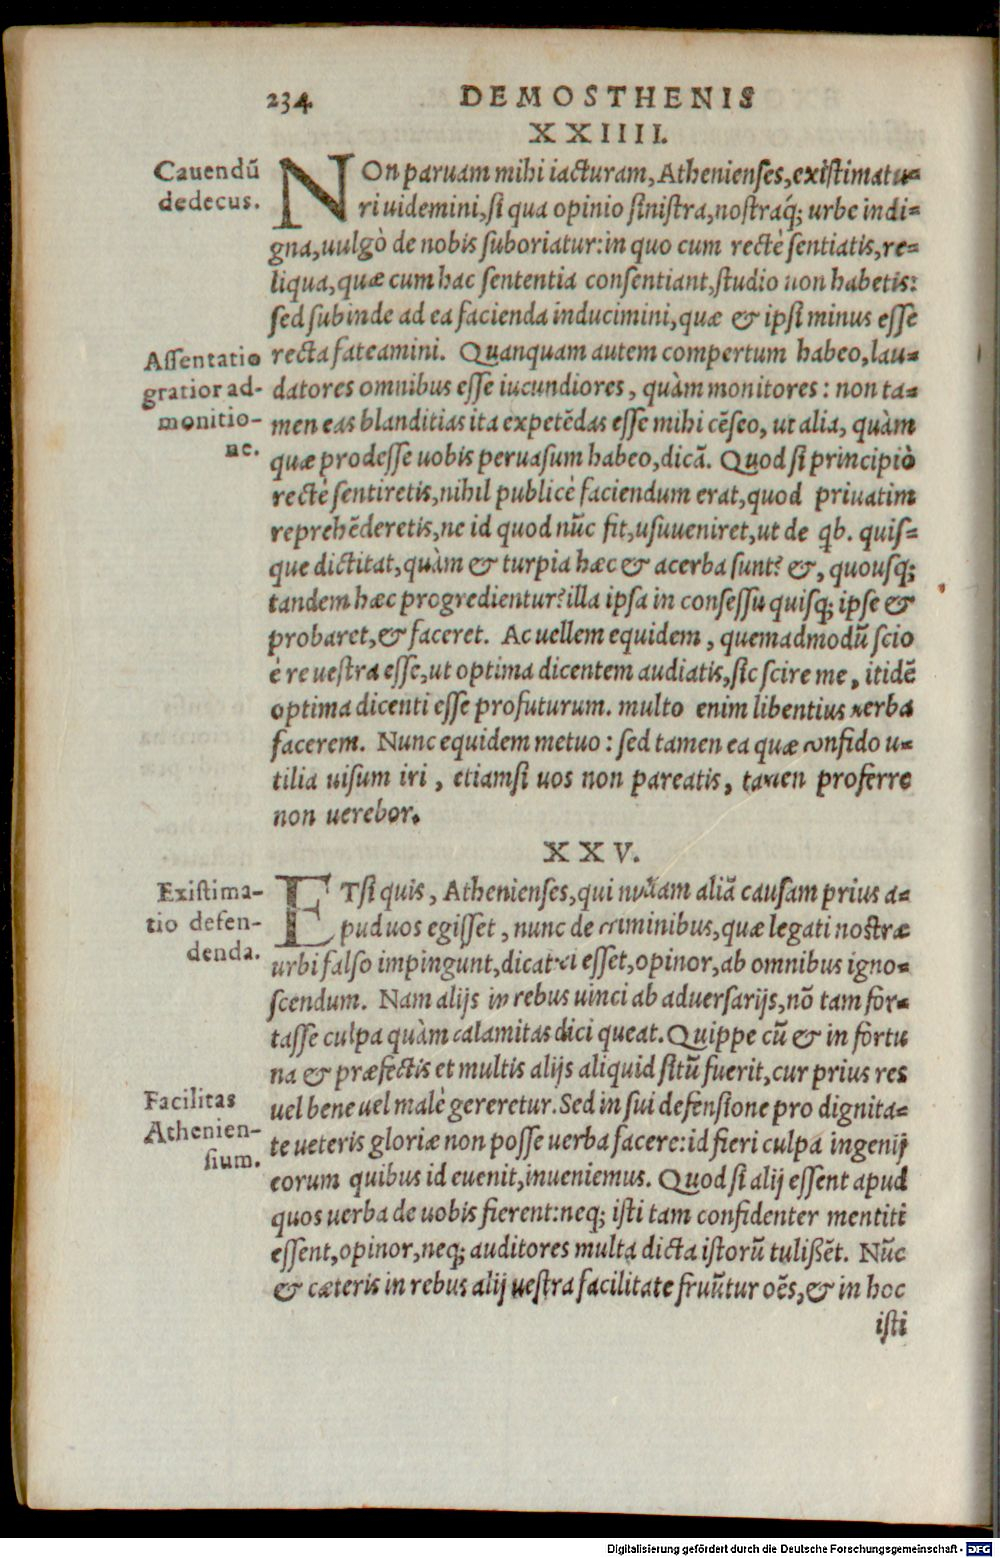 234 DEMOSTHENIS
XXIIII.
Cauendũ
dedecus.
NOn paruam mihi iacturam, Athenienses, existimatu=
ri uidemini, si qua opinio sinistra, nostraq́; urbe indi=
gna, uulgò de nobis suboriatur: in quo cum rectè sentiatis, re=
liqua, quæ cum hac sententia consentiant, studio non habetis:
sed subinde ad ea facienda inducimini, quæ & ipsi minus esse
Assentatio
gratior ad-
monitio-
ne.
recta fateamini. Quanquam autem compertum habeo, lau=
datores omnibus esse iucundiores, quàm monitores: non ta=
men eas blanditias ita expetẽdas esse mihi cẽseo, ut alia, quàm
quæ prodesse uobis peruasum habeo, dicã. Quod si principiò
rectè sentiretis, nihil publicè faciendum erat, quod priuatim
reprehẽderetis, ne id quod nũc fit, usuueniret, ut de qb. quis=
que dictitat, quàm & turpia hæc & acerba sunt? &, quousq;
tandem hæc progredientur? illa ipsa in consessu quisq; ipse &
probaret, & faceret. Ac uellem equidem, quemadmodũ scio
è re uestra esse, ut optima dicentem audiatis, sic scire me, itidẽ
optima dicenti esse profuturum. multo enim libentius uerba
facerem. Nunc equidem metuo: sed tamen ea quæ confido u=
tilia uisum iri, etiamsi uos non pareatis, tamen proferre
non uerebor.
XXV.
Existima-
tio defen-
denda.
ETsi quis, Athenienses, qui nullam aliã causam prius a=
pud uos egisset, nunc de criminibus, quæ legati nostræ
urbi falso impingunt, dicturi esset, opinor, ab omnibus igno=
scendum. Nam alijs in rebus uinci ab aduersarijs, nõ tam for=
tasse culpa quàm calamitas dici queat. Quippe cũ & in fortu
na & præfectis et multis alijs aliquid sitũ fuerit, cur prius res
Facilitas
Athenien-
sium.
uel bene uel malè gereretur. Sed in sui defensione pro dignita=
te ueteris gloriæ non posse uerba facere: id fieri culpa ingenij
eorum quibus id euenit, inueniemus. Quod si alij essent apud
quos uerba de uobis fierent: neq; isti tam confidenter mentiti
essent, opinor, neq; auditores multa dicta istorũ tulißẽt. Nũc
& cæteris in rebus alij uestra facilitate fruũtur oẽs, & in hoc
isti
Digitalisierung gefördert durch die Deutsche Forschungsgemeinschaft - DFG